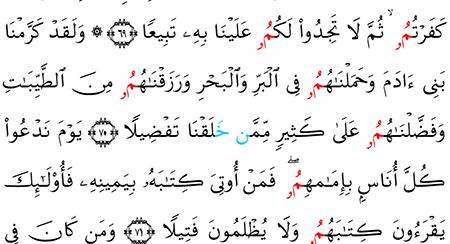 كَفَرْتُمُۥ ۙ ثُمَّ لَا تَجِدُوا۟ لَكُمُۥ عَلَيْنَا بِهِۦ تَبِيعًا ﴿٦٩﴾ ۞ وَلَقَدْ كَرَّمْنَا
بَنِىٓ ءَادَمَ وَحَمَلْنَـٰهُمُۥ فِى ٱلْبَرِّ وَٱلْبَحْرِ وَرَزَقْنَـٰهُمُۥ مِنَ ٱلطَّيِّبَـٰتِ
وَفَضَّلْنَـٰهُمُۥ عَلَىٰ كَثِيرٍ مِّمَّن خَلَقْنَا تَفْضِيلًا ﴿٧٠﴾ يَوْمَ نَدْعُوا۟
كُلَّ أُنَاسٍۭ بِإِمَـٰمِهِمُۥ ۖ فَمَنْ أُوتِىَ كِتَـٰبَهُۥ بِيَمِينِهِۦ فَأُو۟لَـٰٓئِكَ
يَقْرَءُونَ كِتَـٰبَهُمُۥ وَلَا يُظْلَمُونَ فَتِيلًا ﴿٧١﴾ وَمَن كَانَ فِى